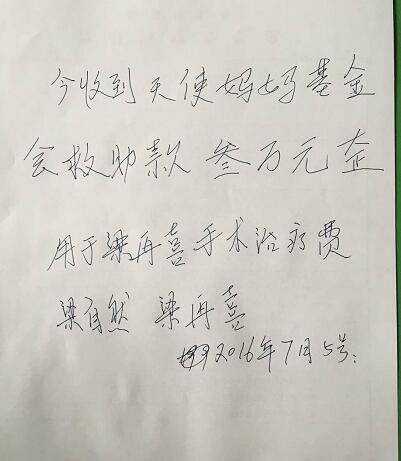 今收到天使妈妈基金
会救助款 叁万元正
用于梁再喜手术治疗费
梁自然 梁再喜
2016年7月5号